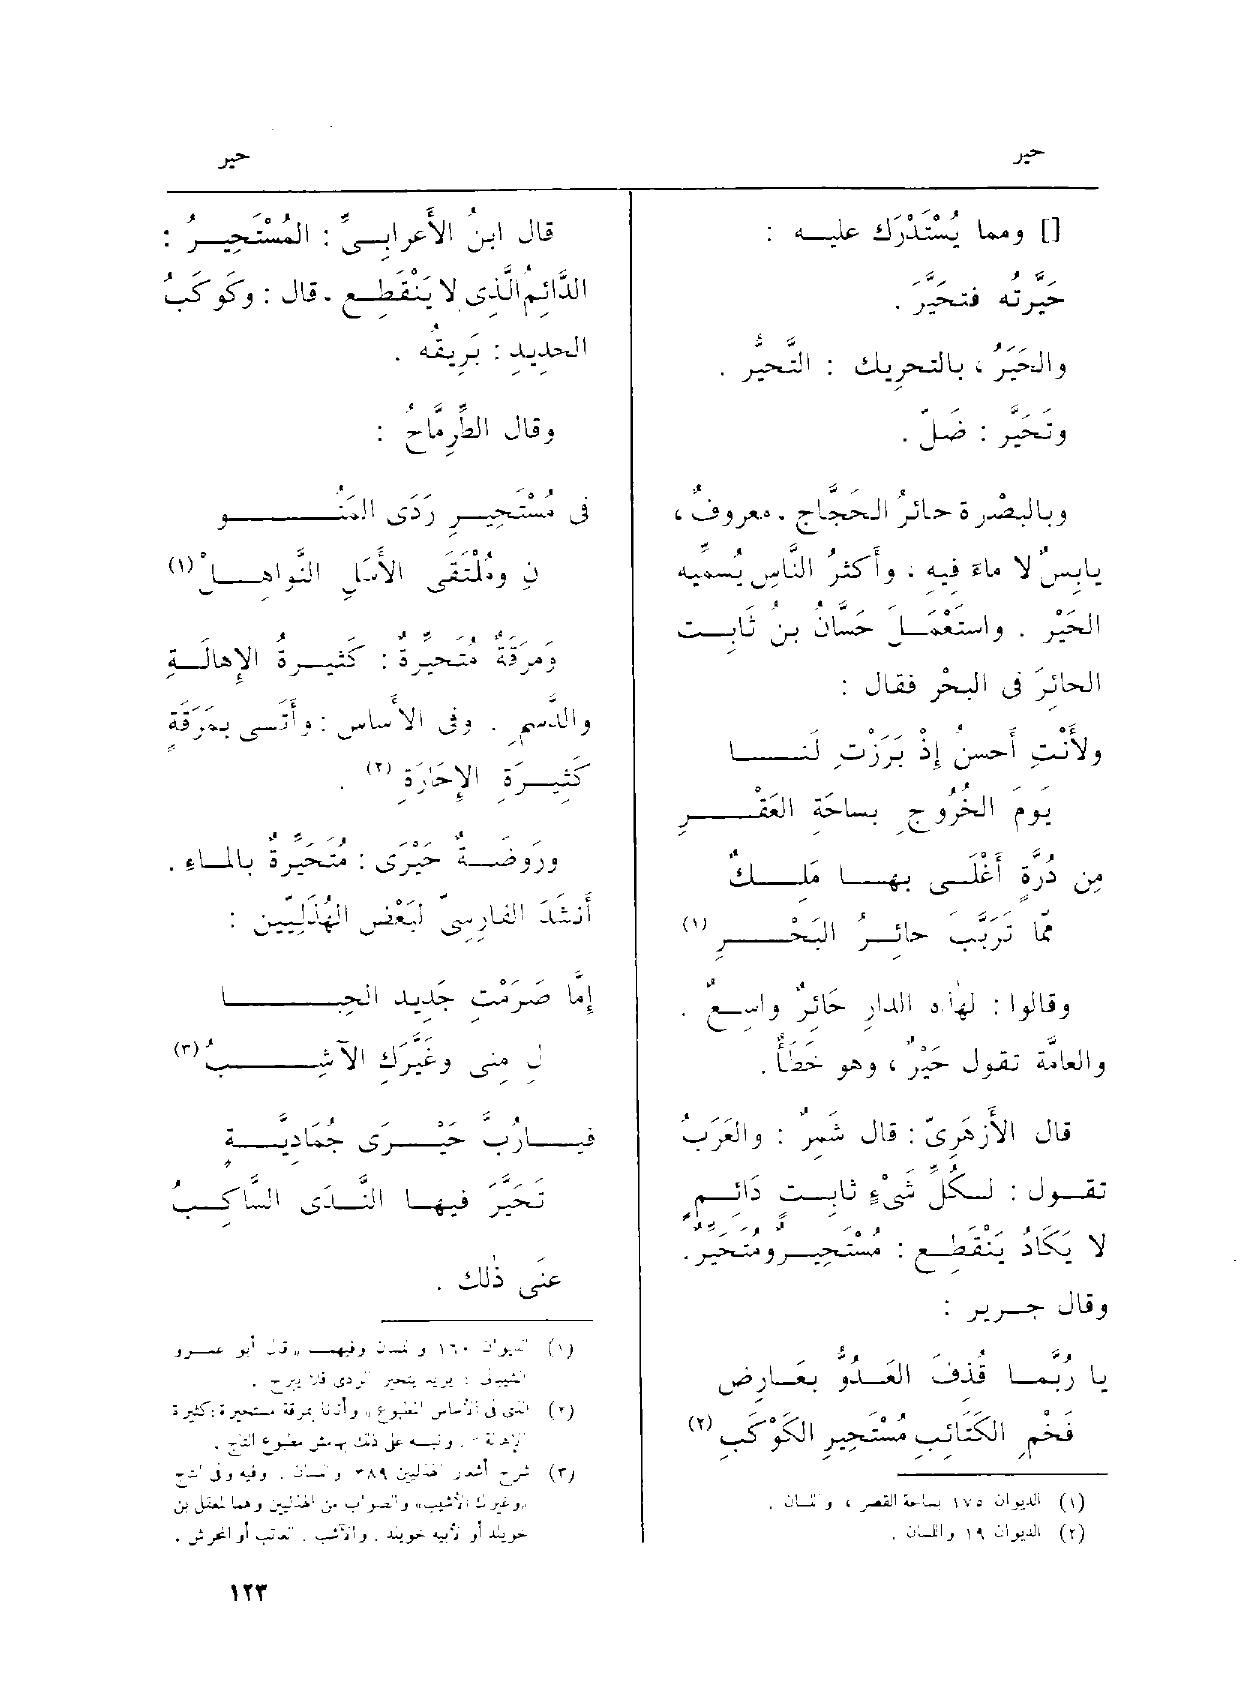 حير
حير
[] ومما يُسْتَدْرَك عليــه :
حَيَّرتُه فتحَيَّر .
والحَيَرُ ، بالتحرِيك : التَّحيُّر .
وتَحَيَّر : ضَلّ .
وبالبصْرة حائرُ الحَجَّاجِ . معروفٌ ،
يابِسٌ لا ماءَ فِيهِ ، وأكثرُ النَّاسِ يُسمِّيه
الحَيْر . واستَعْمَــل حَسَّانُ بنُ ثَابِــت
الحائرَ فى البحْرِ فقال :
ولأَنْتِ أَحسنُ إِذْ بَرَزْتِ لَنــــا
يَومَ الخُرُوجِ بساحَةِ العَقْــــرِ
مِن دُرَّةٍ أَغْلَــى بهــا مَلِــكٌ
مّما تَرَبَّبَ حائِــرُ البَحْــــرِ (١)
وقالوا : لهٰذه الدارِ حَائرٌ واسِــعٌ .
والعامَّة تقول حَيْرٌ ، وهو خَطَأٌ .
قال الأَزهَرِىّ : قال شَمِرٌ : والعَرَبُ
تقــول : لــكُلِّ شَىْءٍ ثابِــت دَائِــمٍ
لا يَكَادُ يَنْقَطِــع : مُسْتَحِيــرٌ ومُتَحَيِّرٌ .
وقال جــرير :
يا رُبَّمــا قُذِفَ العَــدُوُّ بعَــارِض
فَخْمِ الكَتَائبِ مُسْتَحِيرِ الكَوْكَبِ (٢)
(١) الديوان ١٧٥ بساحة القصر ، واللسان .
(٢) الديوان ١٩ واللسان .
قال ابنُ الأَعرابِــىِّ : المُسْتَحِيــرُ :
الدَّائِمُ الَّذِى لا يَنْقَطِــع . قال : وكَوكَبُ
الحدِيدِ : بَرِيقُه .
وقال الطِّرِمَّاحُ :
فى مُسْتَحِيــرِ رَدَى المَنُــــو
نِ ومُلْتَقَى الأَسَلِ النَّواهِــلْ (١)
وَمَرَقَةٌ مُتَحيِّرةٌ : كَثيــرةُ الإِهالَــةِ
والدَّسمِ . وفى الأَساس : وأَتَــى بمَرَقَةٍ
كَثِيــرَةِ الإِحَارَةِ (٢) .
ورَوضَــةٌ حَيْرَى : مُتَحَيِّرةٌ بالمــاءِ .
أَنشَدَ الفارِسىّ لبَعْض الهُذَلِيِّين :
إِمَّا صَرَمْتِ جَدِيد الحِبــــا
لِ مِنى وغَيَّرَك الآشِــــبُ (٣)
فيــارُبَّ حَيْــرَى جُمَادِيَّــةٍ
تَحَيَّرَ فيهــا النَّــدَى السَّاكِــبُ
عنَى ذٰلك .
(١) الديوان ١٦٠ واللسان وفيهــا « قال أبو عمــرو
الشيبانى : يريد يتحير الردى فلا يبرح .
(٢) الذى فى الأساس المطبوع « وأتانا بمرقة مستحيرة : كثيرة
الإهالة » . ونبــه على ذلك بهامش مطبوع التاج .
(٣) شرح أشعار الهذليين ٣٨٩ واللسان . وفيه وفى التاج
« وغيرك الأشيب » والصواب من الهذليين وهما لمعقل بن
خويلد أو لأبيه خويلد . والآشب . العاتب أو المحرش .
١٢٣